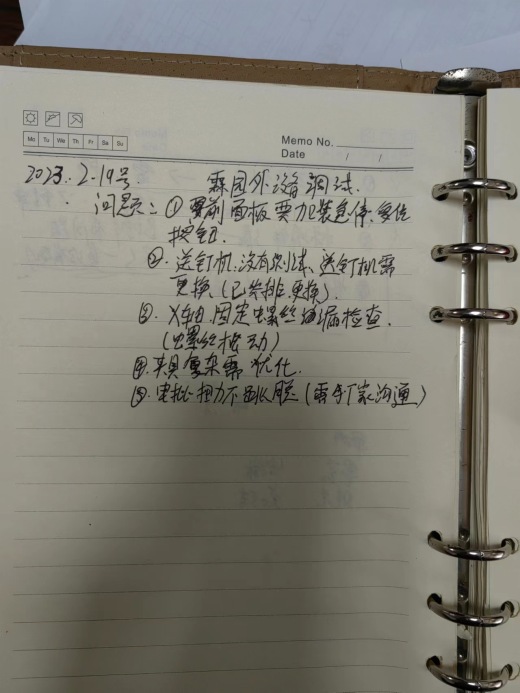 Mo Tu We Th Fr Sa Su
Memo No.
Date / /
2023.2-19号. 霖园外设备调试.
问题: ①要前面板要加装急停,复位
按钮.
②. 送钉机,没有测试、送钉机需
更换(已安排更换).
③. X轴固定螺丝 漏检查.
(螺丝松动)
④.夹具复杂需优化.
⑤.电批扭力不跳脱(需与厂家沟通)